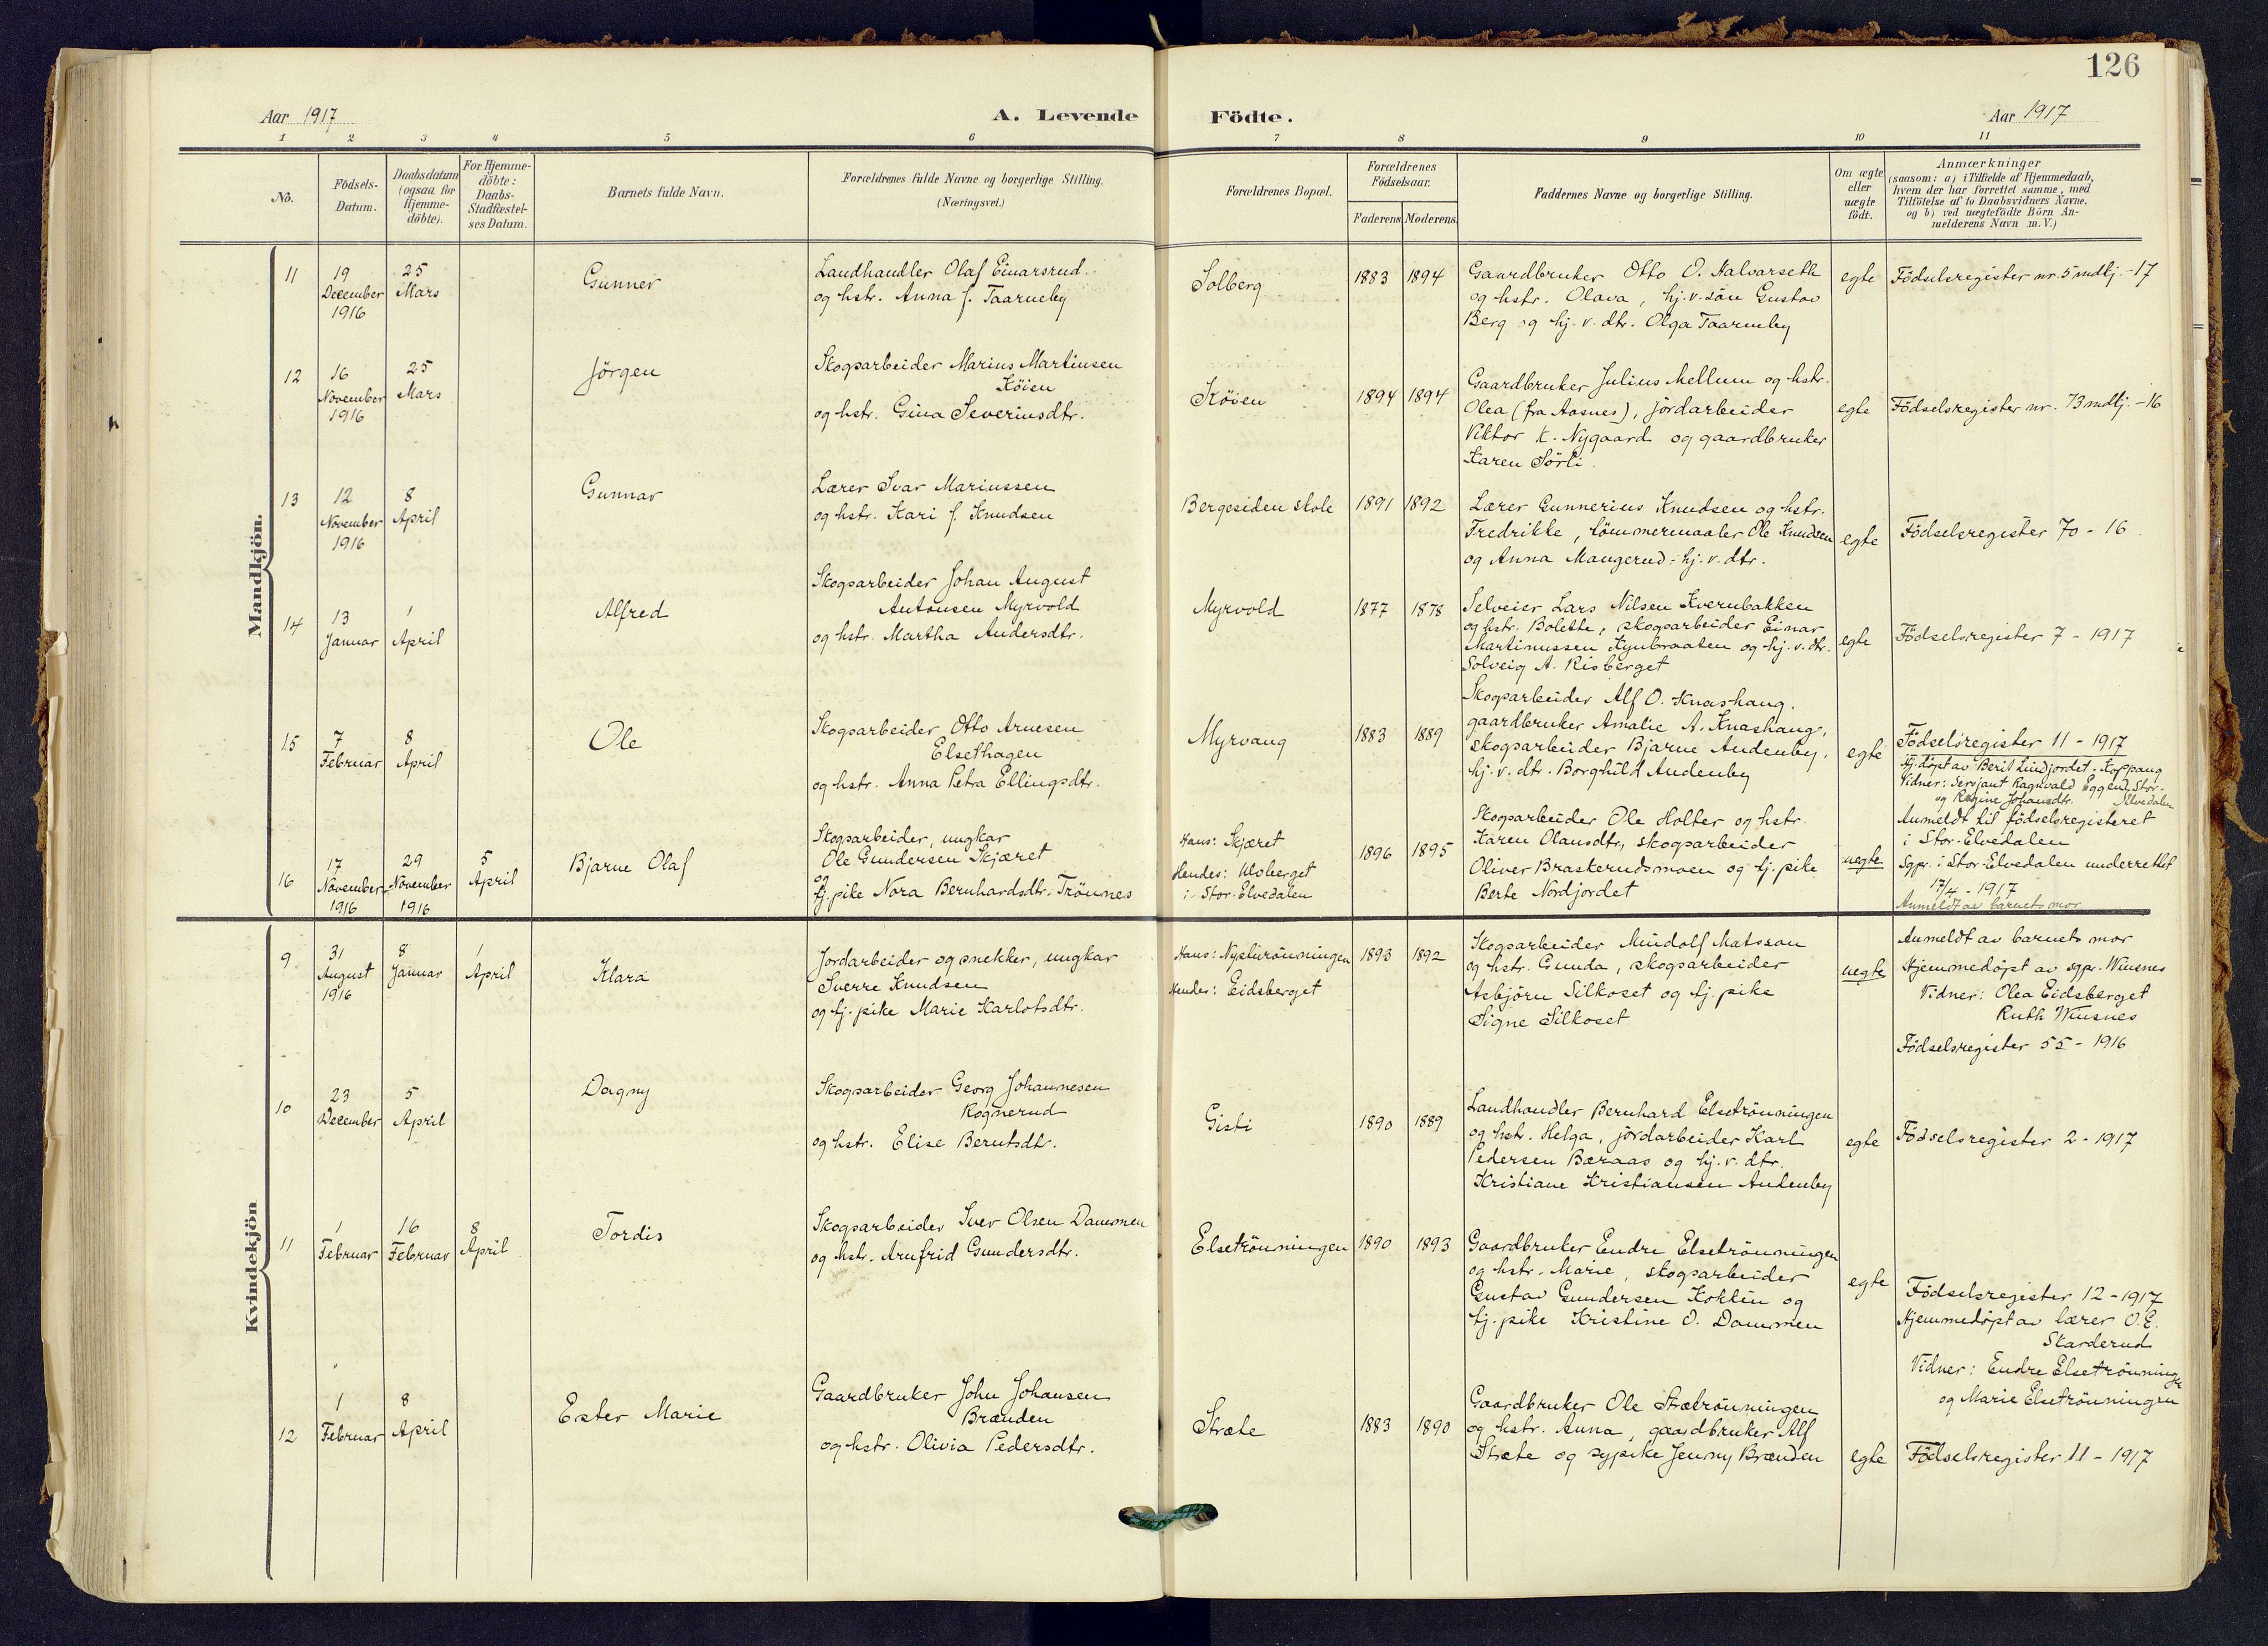 126
Aar 1917
A. Levende Födte.
Aar 1917
1 2 3 4 5 6 7 8 9 10 11
No.
Födsels-
Datum.
Daabsdatum
(ogsaa for
Hjemme-
döbte).
For Hjemme-
döbte:
Daabs-
Stadfæstel-
ses Datum.
Barnets fulde Navn.
Forældrenes fulde Navne og borgerlige Stilling.
(Næringsvei.)
Forældrenes Bopæl.
Forældrenes
Födselsaar.
Faderens. Moderens.
Faddernes Navne og borgerlige Stilling.
Om ægte
eller
uægte
födt.
Anmærkninger
(saasom: a) i Tilfælde af Hjemmedaab,
hvem der har forrettet samme, med
Tilföielse af to Daabsvidners Navne.
og b) ved uægtefödte Börn An-
melderens Navn m. V.)
Mandkjön.
11
19
December
1916
25
Mars
Gunner
Landhandler Olaf Einarsrud
og hstr. Anna f. Taarneby
Solberg
1883 1894
Gaardbruker Otto O. Halvarseth
og hstr. Olava, hj.v. sön Gustav
Berg og hj. v. dtr. Olga Taarneby
egte
Födselsregister nr. 5 mdkj. -17
12
16
November
1916
25
Mars
Jörgen
Skogsarbeider Marius Martinsen
Köien
og hstr. Gina Severinsdtr.
Köien
1894 1894
Gaardbruker Julius Mellum og hstr.
Olea (fra Aasnes), jordarbeider
Viktor K. Nygaard og gaardbruker
Karen Sörli.
egte
Födselsregister nr. 73 mdkj. -16
13
12
November
1916
8
April
Gunnar
Lærer Ivar Mariussen
og hstr. Kari f. Knudsen
Bergesiden skole
1891 1892
Lærer Gunnerius Knudsen og hstr.
Fredrikke, tömmermaaler Ole Knudsen
og Anna Mangerud: hj. v. dtr.
egte
Födselsregister 70 - 16
14
13
Januar
1
April
Alfred
Skogsarbeider Johan August
Antonsen Myrvold
og hstr. Martha Andersdtr.
Myrvold
1877 1878
Selveier Lars Nilsen Kvernbakken
og hstr. Bolette, skogsarbeider Einar
Martinussen Kynbraaten og hj. v. dtr.
Solveig A. Risberget
egte
Födselsregister 7 - 1917
15
7
Februar
8
April
Ole
Skogsarbeider Otto Arnesen
Elsethagen
og hstr. Anna Petra Ellingsdtr.
Myrvang
1883 1889
Skogsarbeider Alf O. Knashaug,
gaardbruker Amalie A. Knashaug,
skogsarbeider Bjarne Audenby,
hj. v. dtr. Borghild Audenby
egte
Födselsregister 11 - 1917
16
17
November
1916
29
November
1916
5
April
Bjarne Olaf
Skogsarbeider, ungkar
Ole Gundersen Skjæret
og
tj. pike Nora Bernhardsdtr. Trönnes
Hans: Skjæret
Hendes: Ulvberget
i Stor-Elvedalen
1896 1895
Skogsarbeider Ole Holter og hstr.
Karen Olausdtr., skogsarbeider
Oliver Braskerudsmoen og tj. pike
Berte Nordjordet
uegte
Hj. döpt av Berit Lindjordet - Koppang
Vidner: Serjant Ragnvald Eggen, Stor-
og Regine Johansdtr. Elvedalen
Anmeldt til födselsregisteret
i Stor-Elvedalen
Sgpr. i Stor-Elvedalen underrettet
17/4 - 1917
Anmeldt av barnets mor
Kvindekjön
9
31
August
1916
8
Januar
1
April
Klara
Jordarbeider og snekker, ungkar
Sverre Knudsen
og tj. pike Marie Karlotsdtr.
Hans:
Hendes: Eidsberget
1893 1892
Skogsarbeider Mindolf Matsson
og hstr. Gunda, skogsarbeider
Asbjörn Silkoset og tj. pike
Signe Silkoset
uegte
Anmeldt av barnets mor
Hjemmedöpt av sgpr. Winsnes
Vidner: Olea Eidsberget
Ruth Winsnes
Födselsregister 55 - 1916
10
23
December
5
April
Dagny
Skogsarbeider Georg Johannesen
Rognerud
og hstr. Elise Berntsdtr.
Gisti
1890 1889
Landhandler Bernhard Elsetrönningen
og hstr. Helga, jordarbeider Karl
Pedersen Baraas og hj. v. dtr.
Kristiane Kristiansen Audenby
egte
Födselsregister 2 - 1917
11
1
Februar
16
Februar
8
April
Tordis
Skogsarbeider Iver Olsen Dammen
og hstr. Arnfrid Gundersdtr.
Elsetrönningen
1890 1893
Gaardbruker Endre Elsetrönningen
og hstr. Marie, skogsarbeider
Gustav Gundersen Koklin og
tj. pike Kristine O. Dammen
egte
Födselsregister 12 - 1917
Hjemmedöpt av lærer O. E.
Skarderud
Vidner: Endre Elsetrönningen
og Marie Elsetrönningen
12
1
Februar
8
April
Ester Marie
Gaardbruker John Johansen
Brænden
og hstr. Olivia Pedersdtr.
Stræte
1883 1890
Gaardbruker Ole Strætrönningen
og hstr. Anna, gaardbruker Alf
Stræte og sypike Jenny Brænden
egte
Födselsregister 11 - 1917